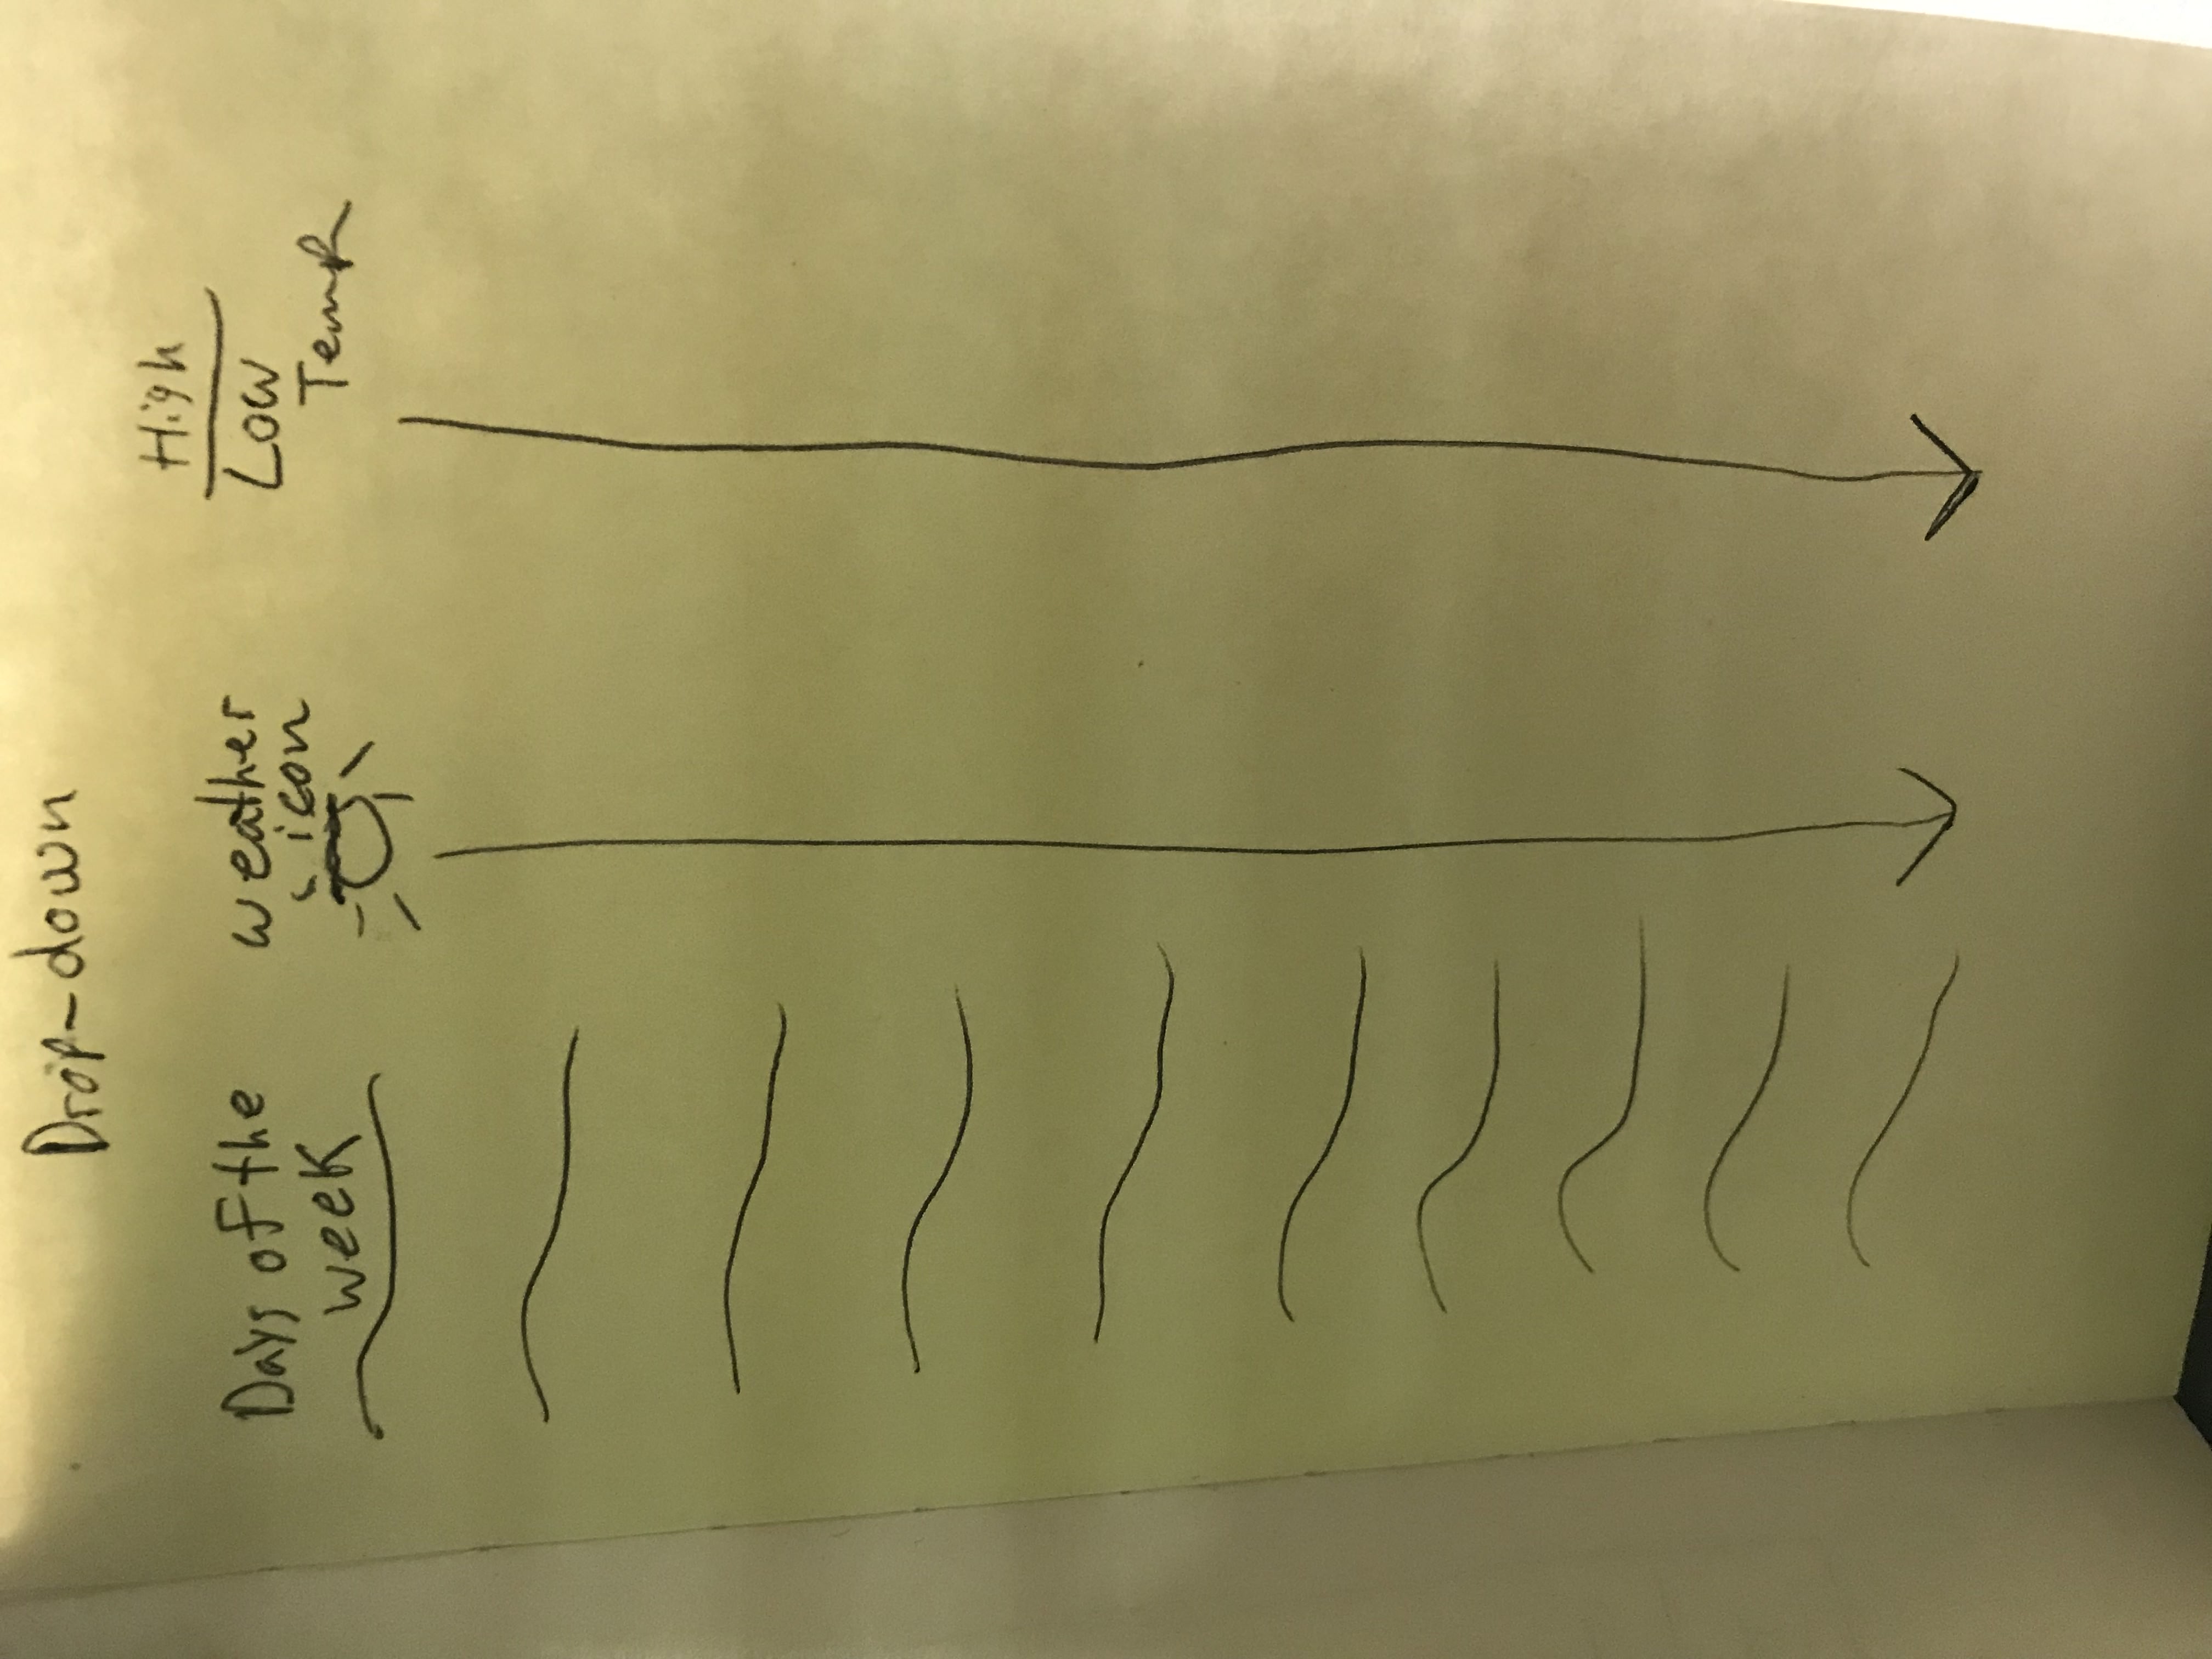 Drop-down
Days of the
week
weather
icon
High
Low
Temp